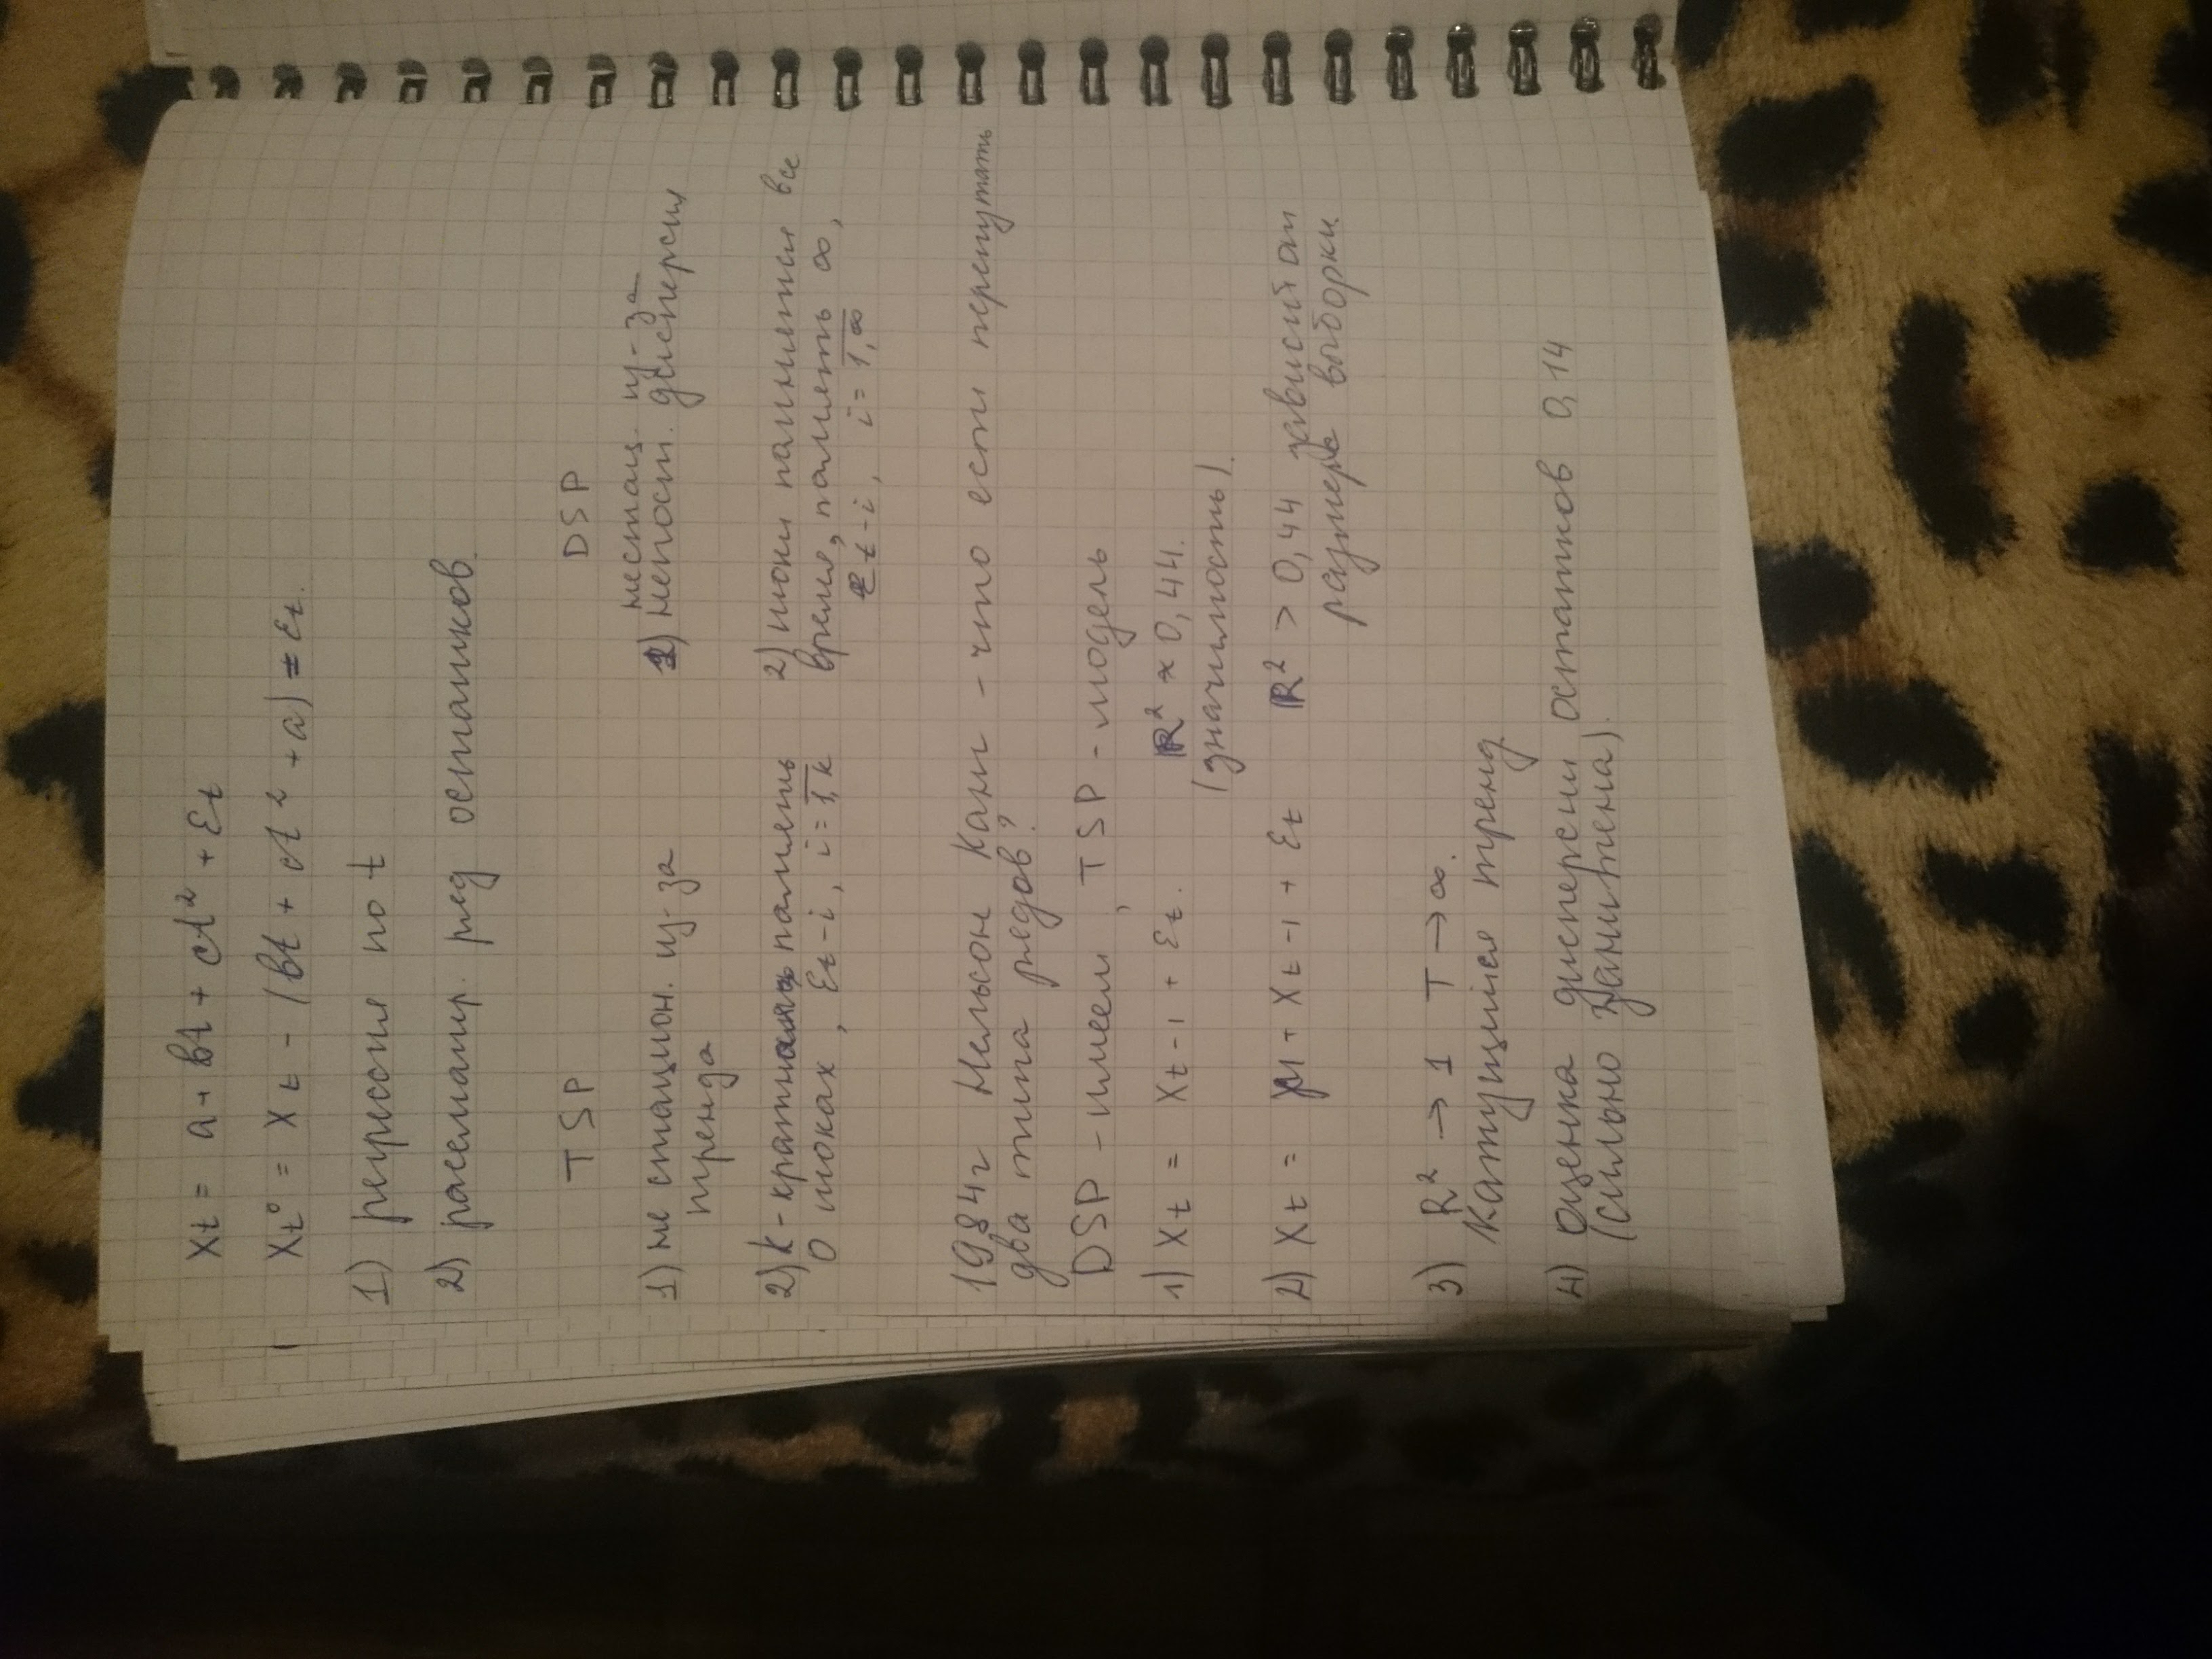 Xt = a + bt + ct² + εt
Xt⁰ = Xt - (bt + ct² + a) = εt.
1) регрессия по t
2) рассматр. ряд остатков.
TSP DSP
1) не стацион. из-за тренда
1) нестац. из-за непост. дисперсия
2) k-кратная память о шоках, εt-i, i = 1,k
2) шоки памяти все время, память ∞, εt-i, i = 1,∞
1984г Нельсон Канг - что если перепутать
два типа рядов?
DSP - имеем, TSP - модель
1) Xt = Xt-1 + εt. R² ≈ 0,44.
(значимость).
2) Xt = μ + Xt-1 + εt R² > 0,44 зависит от
размера выборки.
3) R² → 1 T → ∞.
Катущийся тренд
4) Оценка дисперсии остатков 0,14
(сильно занижена).